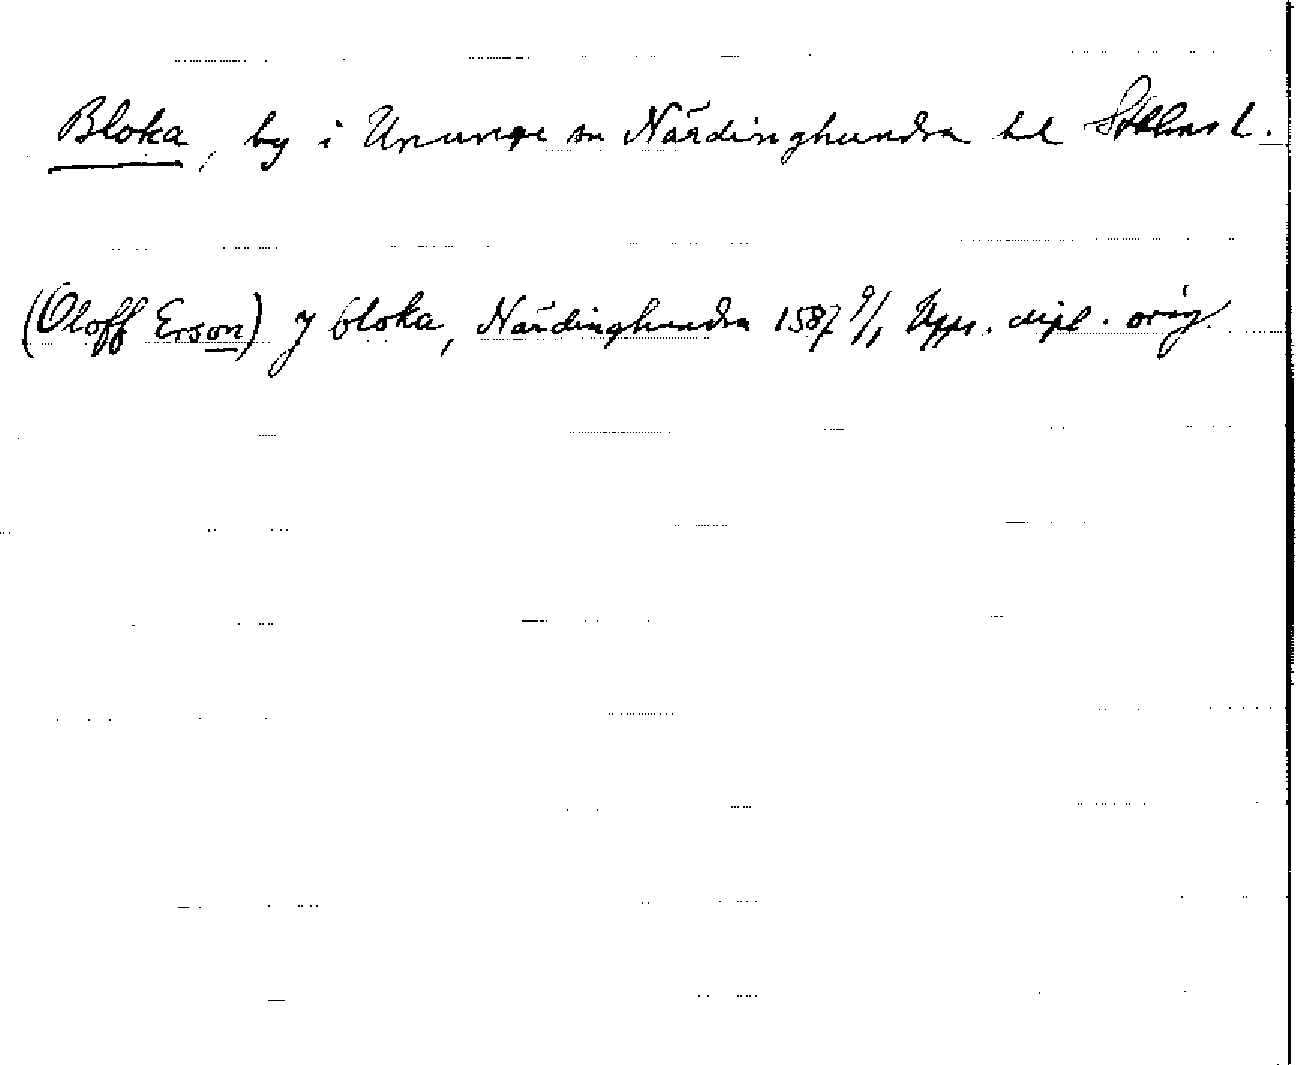 Bloka, by i Ununge sn Närdinghundra hd Sthlms l.
(Oloff Erson) y bloka, Närdinghundra 1587 9/1 Upps. dipl. orig.